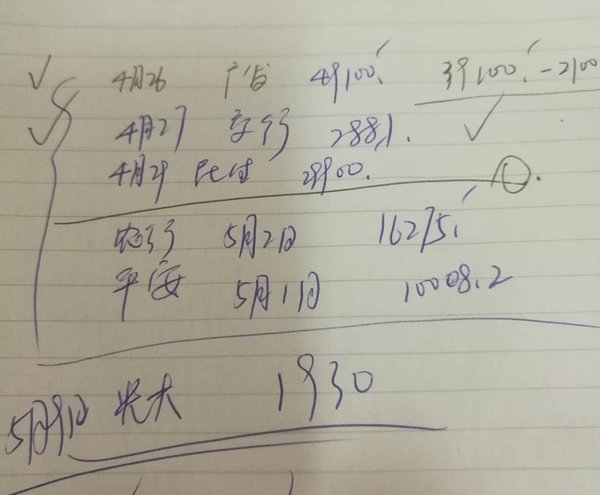 4月26 广发 49100. 39100.-2100
4月27 交行 2881.
4月29 29900.
农行 5月2日 16275.
平安 5月11日 10008.2
5月9日 光大 1930